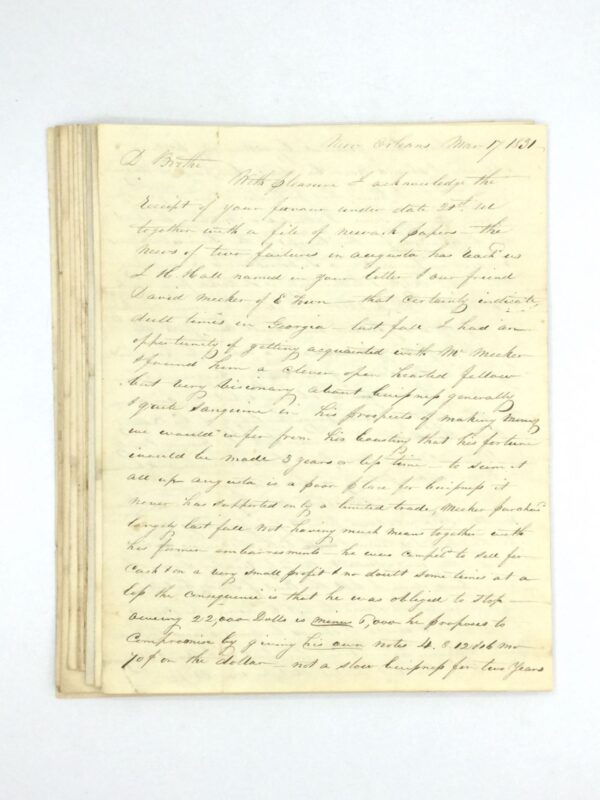 New Orleans Mar 17 1831
D Brothr
With pleasure I acknowledge the
receipt of your favour under date 21st ul
together with a file of newark papers – the
news of two failures in augusta has reach us
J H Hall named in your letter & our friend
David Meeker of E Town – that certainly indicate
dull times in Georgia – last fall I had an
opportunity of getting acquainted with Mr Meeker
& found him a clever open hearted fellow
but very visionary about business generally
& quite sanguine in his prospects of making money
we would infer from his boasting that his fortune
would be made 3 years or less time – to sum it
all up augusta is a poor place for business it
never has supported only a limited trade, Meeker purchasd
largely last fall not having much means together with
his former embarrasments – he was compeld to sell for
cash & on a very small profit & no doubt some times at a
loss the consequence is that he was obliged to stop –
owing 22,000 Dolls is minus 6,000 he proposes to
compromise by giving his own notes 4. 8. 12 & 16 mo
70 ¢ on the dollar – not a slow business for two years